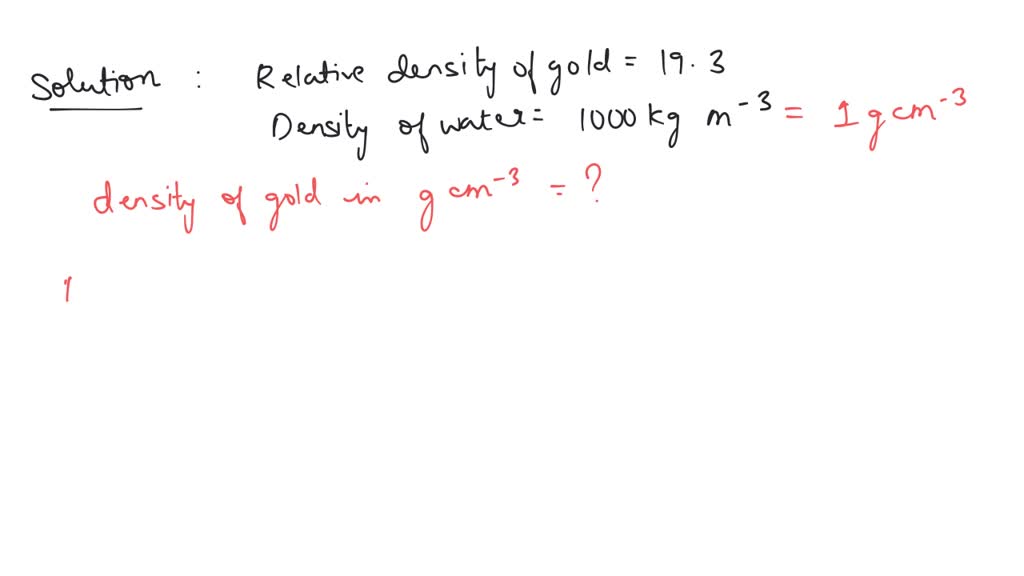 Solution : Relative density of gold = 19.3
Density of water = 1000 kg m⁻³ = 1 g cm⁻³
density of gold in g cm⁻³ = ?